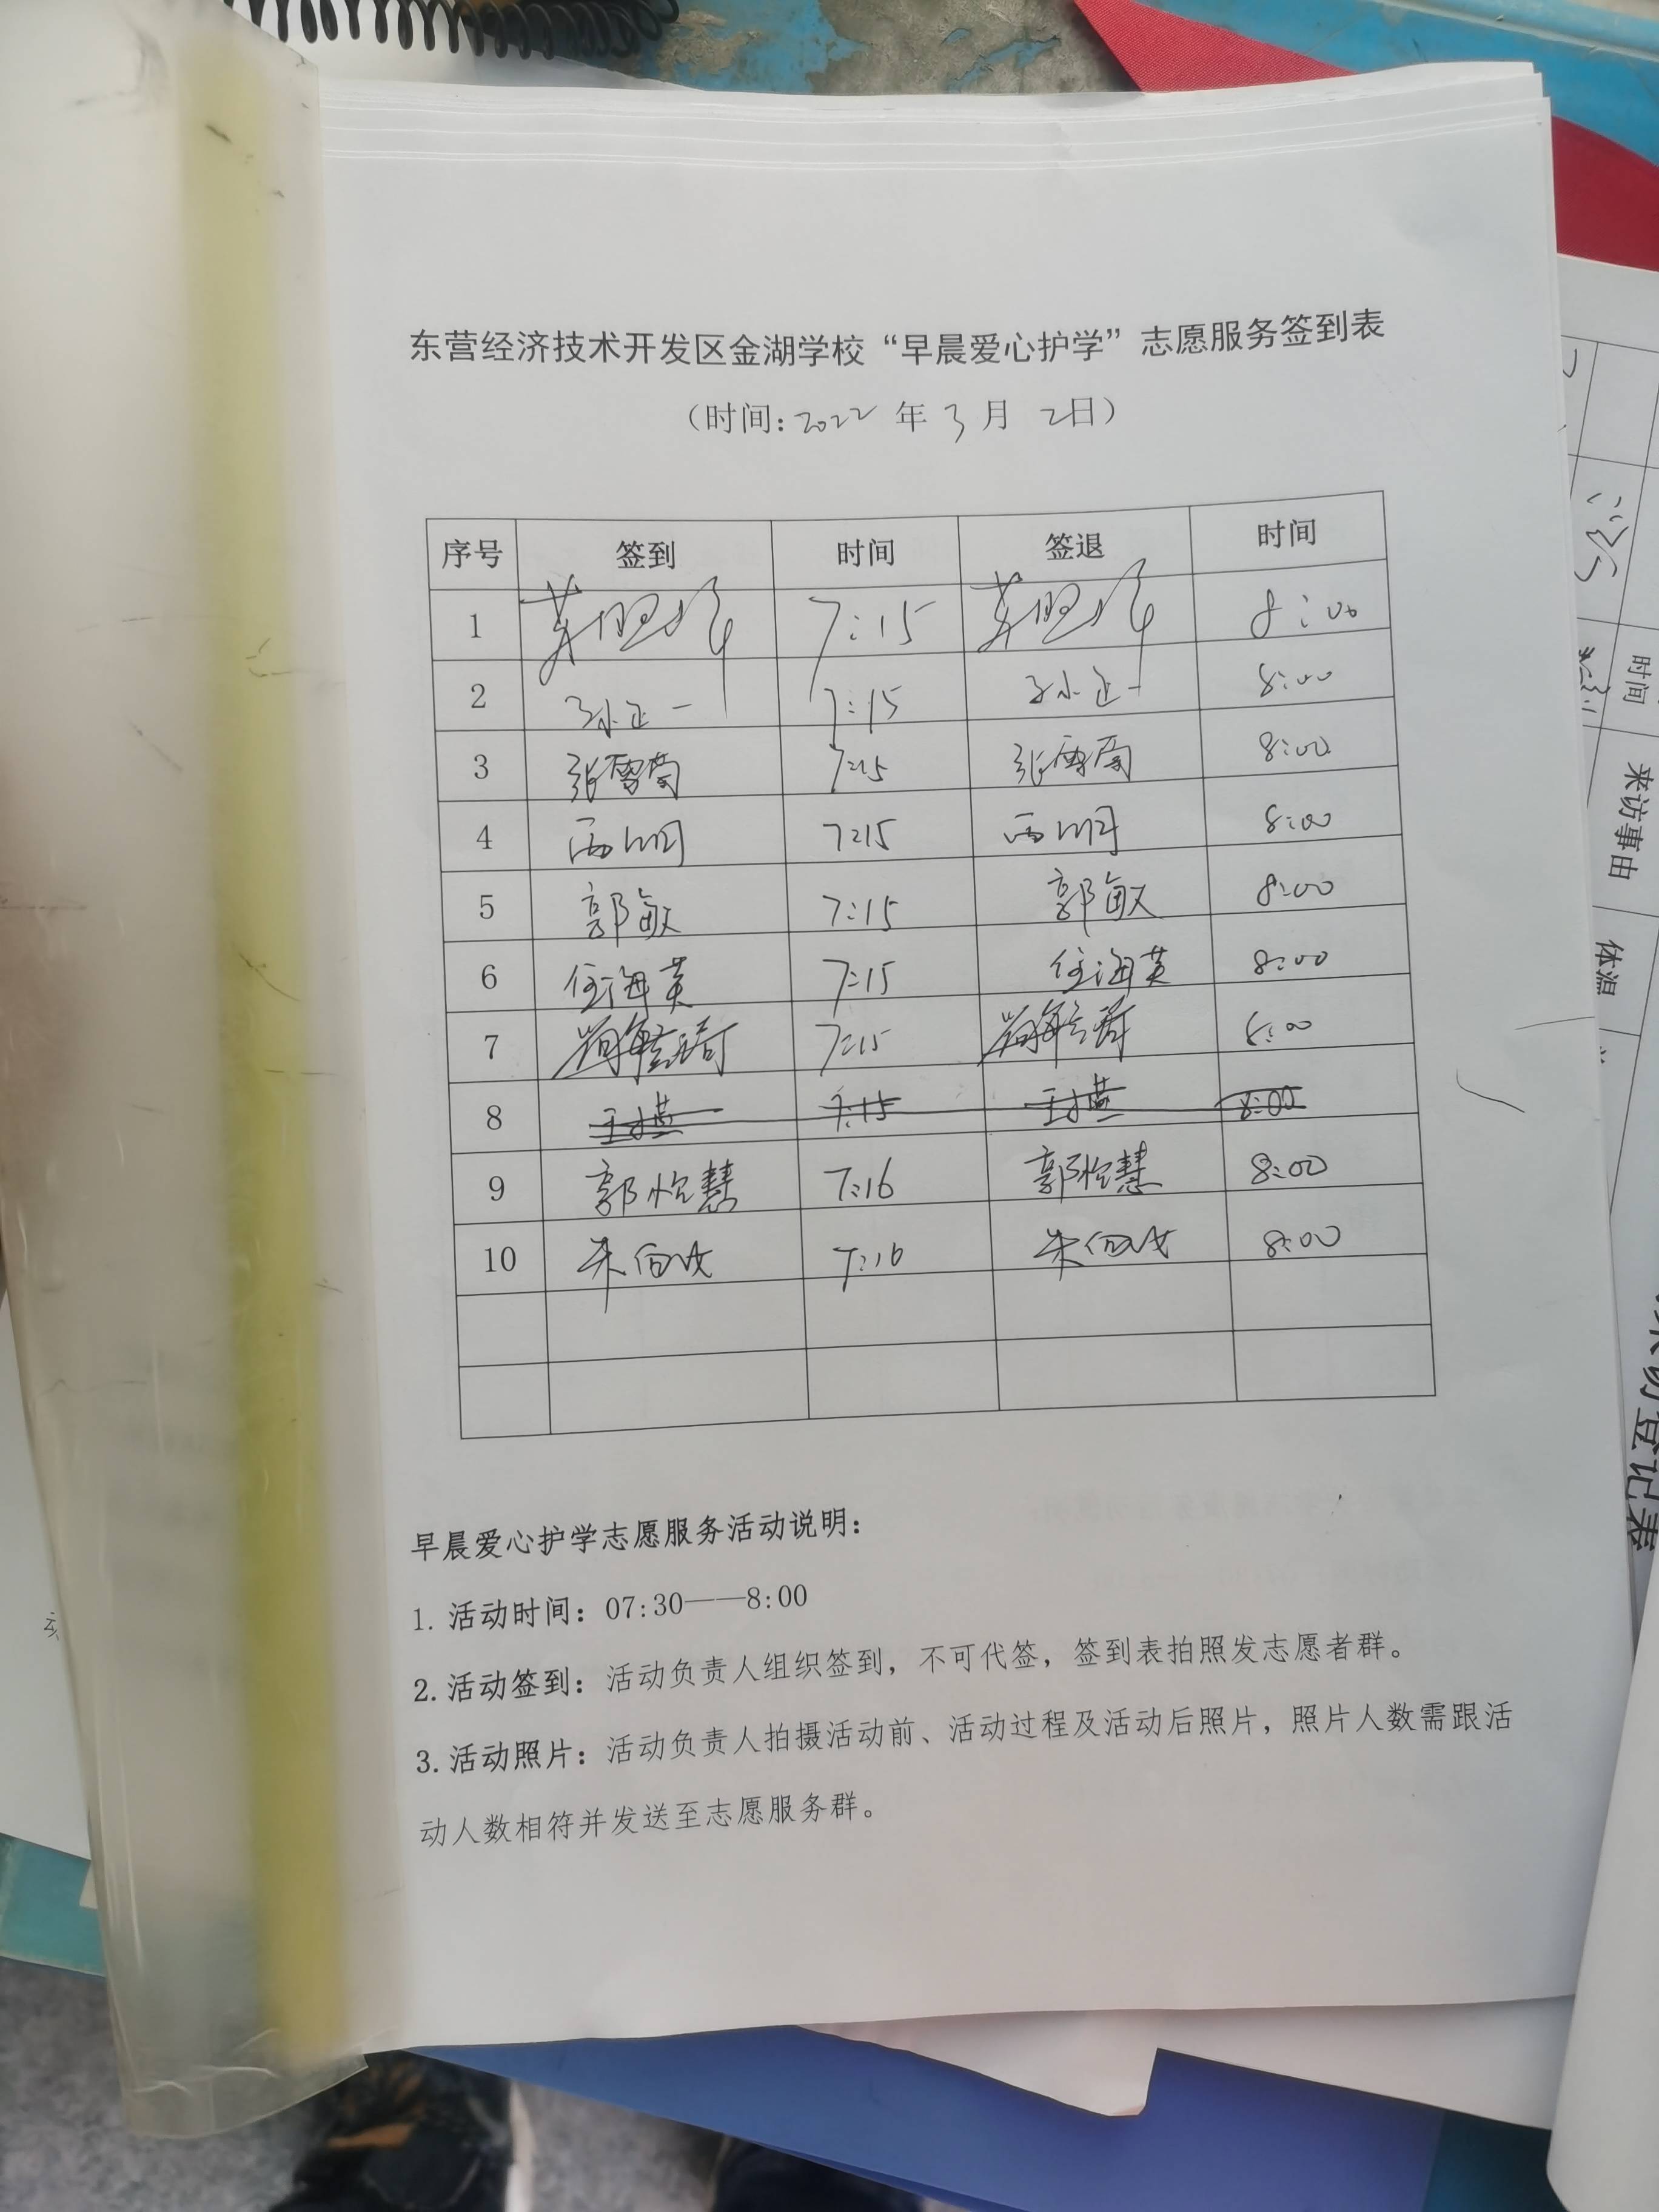 东营经济技术开发区金湖学校“早晨爱心护学”志愿服务签到表
（时间: 2022 年 3 月 2日）
序号 签到 时间 签退 时间
1 7:15 8:00
2 孙正一 7:15 孙正一 8:00
3 7:15 8:00
4 7:15 8:00
5 郭敏 7:15 郭敏 8:00
6 任海英 7:15 任海英 8:00
7 7:15 8:00
8 7:15 8:00
9 郭怡慧 7:16 郭怡慧 8:00
10 7:16 8:00
早晨爱心护学志愿服务活动说明：
1. 活动时间：07:30——8:00
2. 活动签到：活动负责人组织签到，不可代签，签到表拍照发志愿者群。
3. 活动照片：活动负责人拍摄活动前、活动过程及活动后照片，照片人数需跟活
动人数相符并发送至志愿服务群。
时间
来访事由
体温
登记表